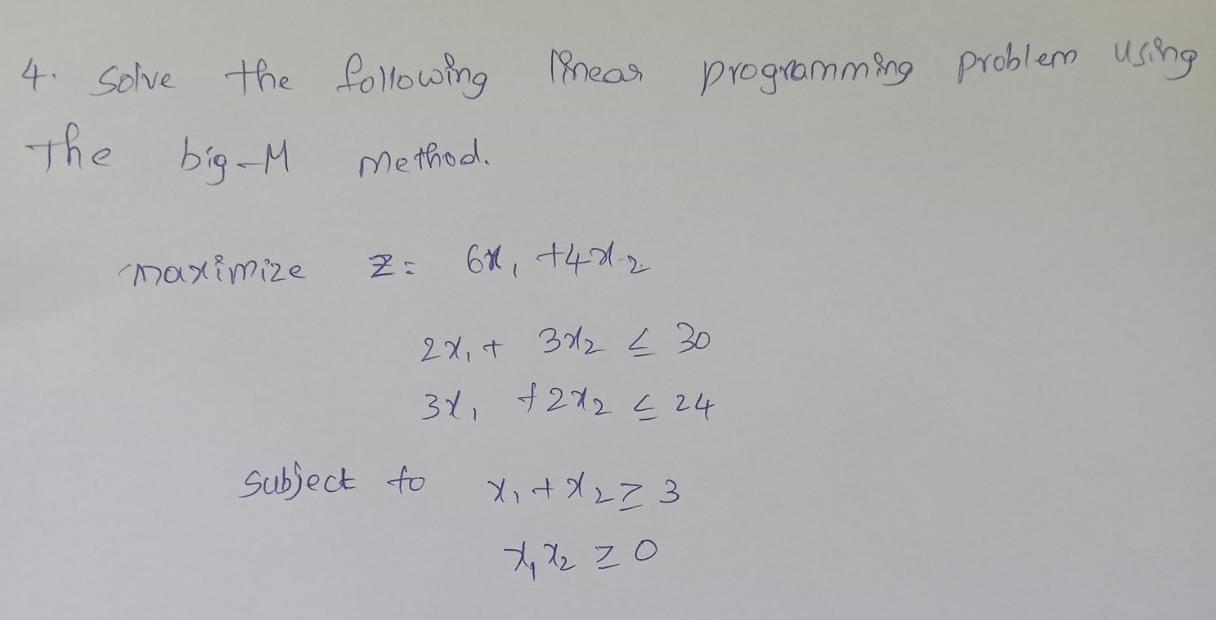 4. Solve the following linear programming problem using
The big-M method.
maximize Z = 6x₁ + 4x₂
2x₁ + 3x₂ ≤ 30
3x₁ + 2x₂ ≤ 24
Subject to x₁ + x₂ ≥ 3
x₁ x₂ ≥ 0